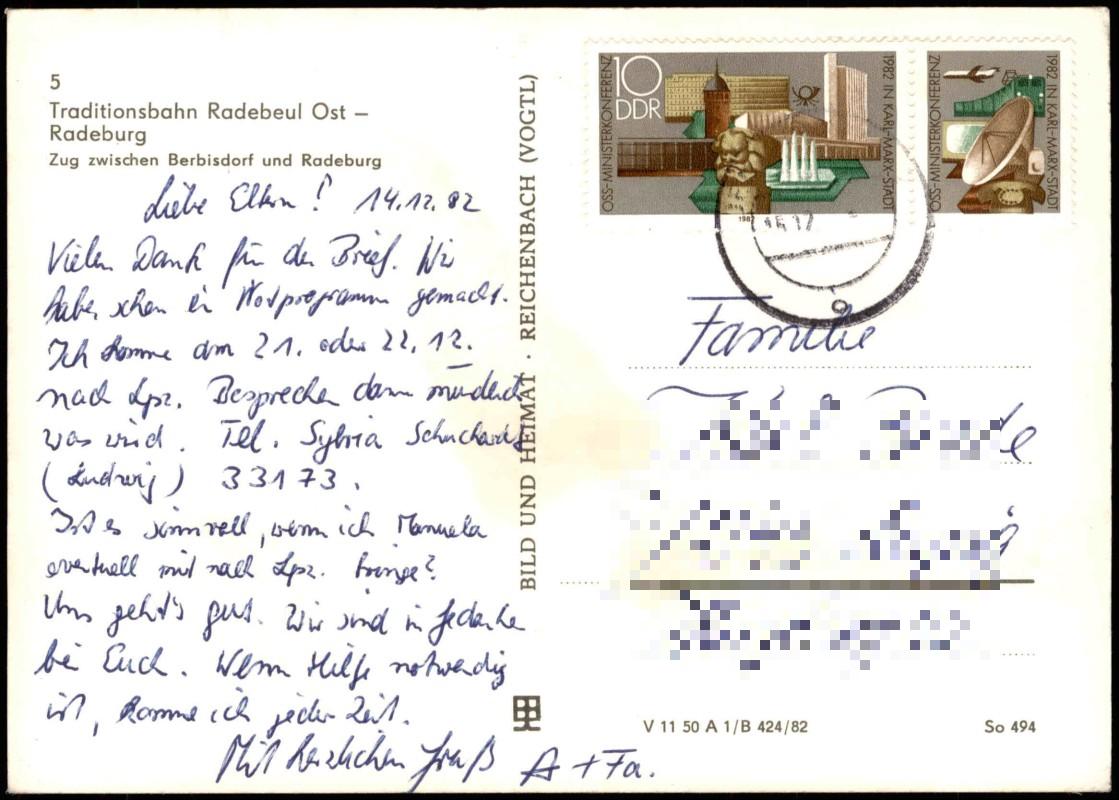 5
Traditionsbahn Radebeul Ost –
Radeburg
Zug zwischen Berbisdorf und Radeburg
Liebe Eltern! 14.12.82
Vielen Dank für den Brief. Wir
haben schon ein Notprogramm gemacht.
Ich komme am 21. oder 22.12.
nach Lpz. Besprechen dann mündlich
was wird. Tel. Sylvia Schuchardt
(Ludwig) 33173.
Ist es sinnvoll, wenn ich Manuela
eventuell mit nach Lpz. bringe?
Uns geht's gut. Wir sind in Gedanken
bei Euch. Wenn Hilfe notwendig
ist, komme ich jeder Zeit.
Mit herzlichem Gruß A + Fa.
BILD UND HEIMAT · REICHENBACH (VOGTL)
OSS-MINISTERKONFERENZ
10
DDR
1982 IN KARL-MARX-STADT
1982
OSS-MINISTERKONFERENZ
1982 IN KARL-MARX-STADT
Familie
V 11 50 A 1/B 424/82
So 494